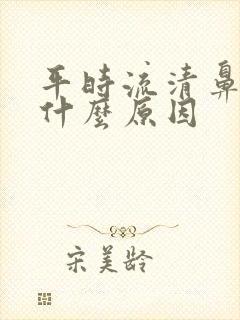 平時流清鼻
什麼原因
宋美龄